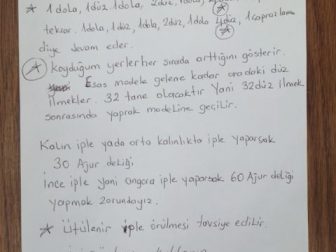 * 1 dola, 1 düz, 1 dola, 2 düz,
tekrar. 1 dola, 1 düz, 1 dola, 2 düz, 1 dola 4 düz, 1 çaprazlama
diye devam eder.
* Koyduğum yerler her sırada arttığını gösterir.
Esas modele gelene kadar aradaki düz
ilmekler. 32 tane olacaktır yani 32 düz ilmek
sonrasında yaprak modeline geçilir.
Kalın iple yada orta kalınlıkta iple yaparsak
30 Ajur deliği
ince iple yani angora iple yaparsak 60 Ajur deliği
yapmak zorundayız.
* Ütülenir iple örülmesi tavsiye edilir.